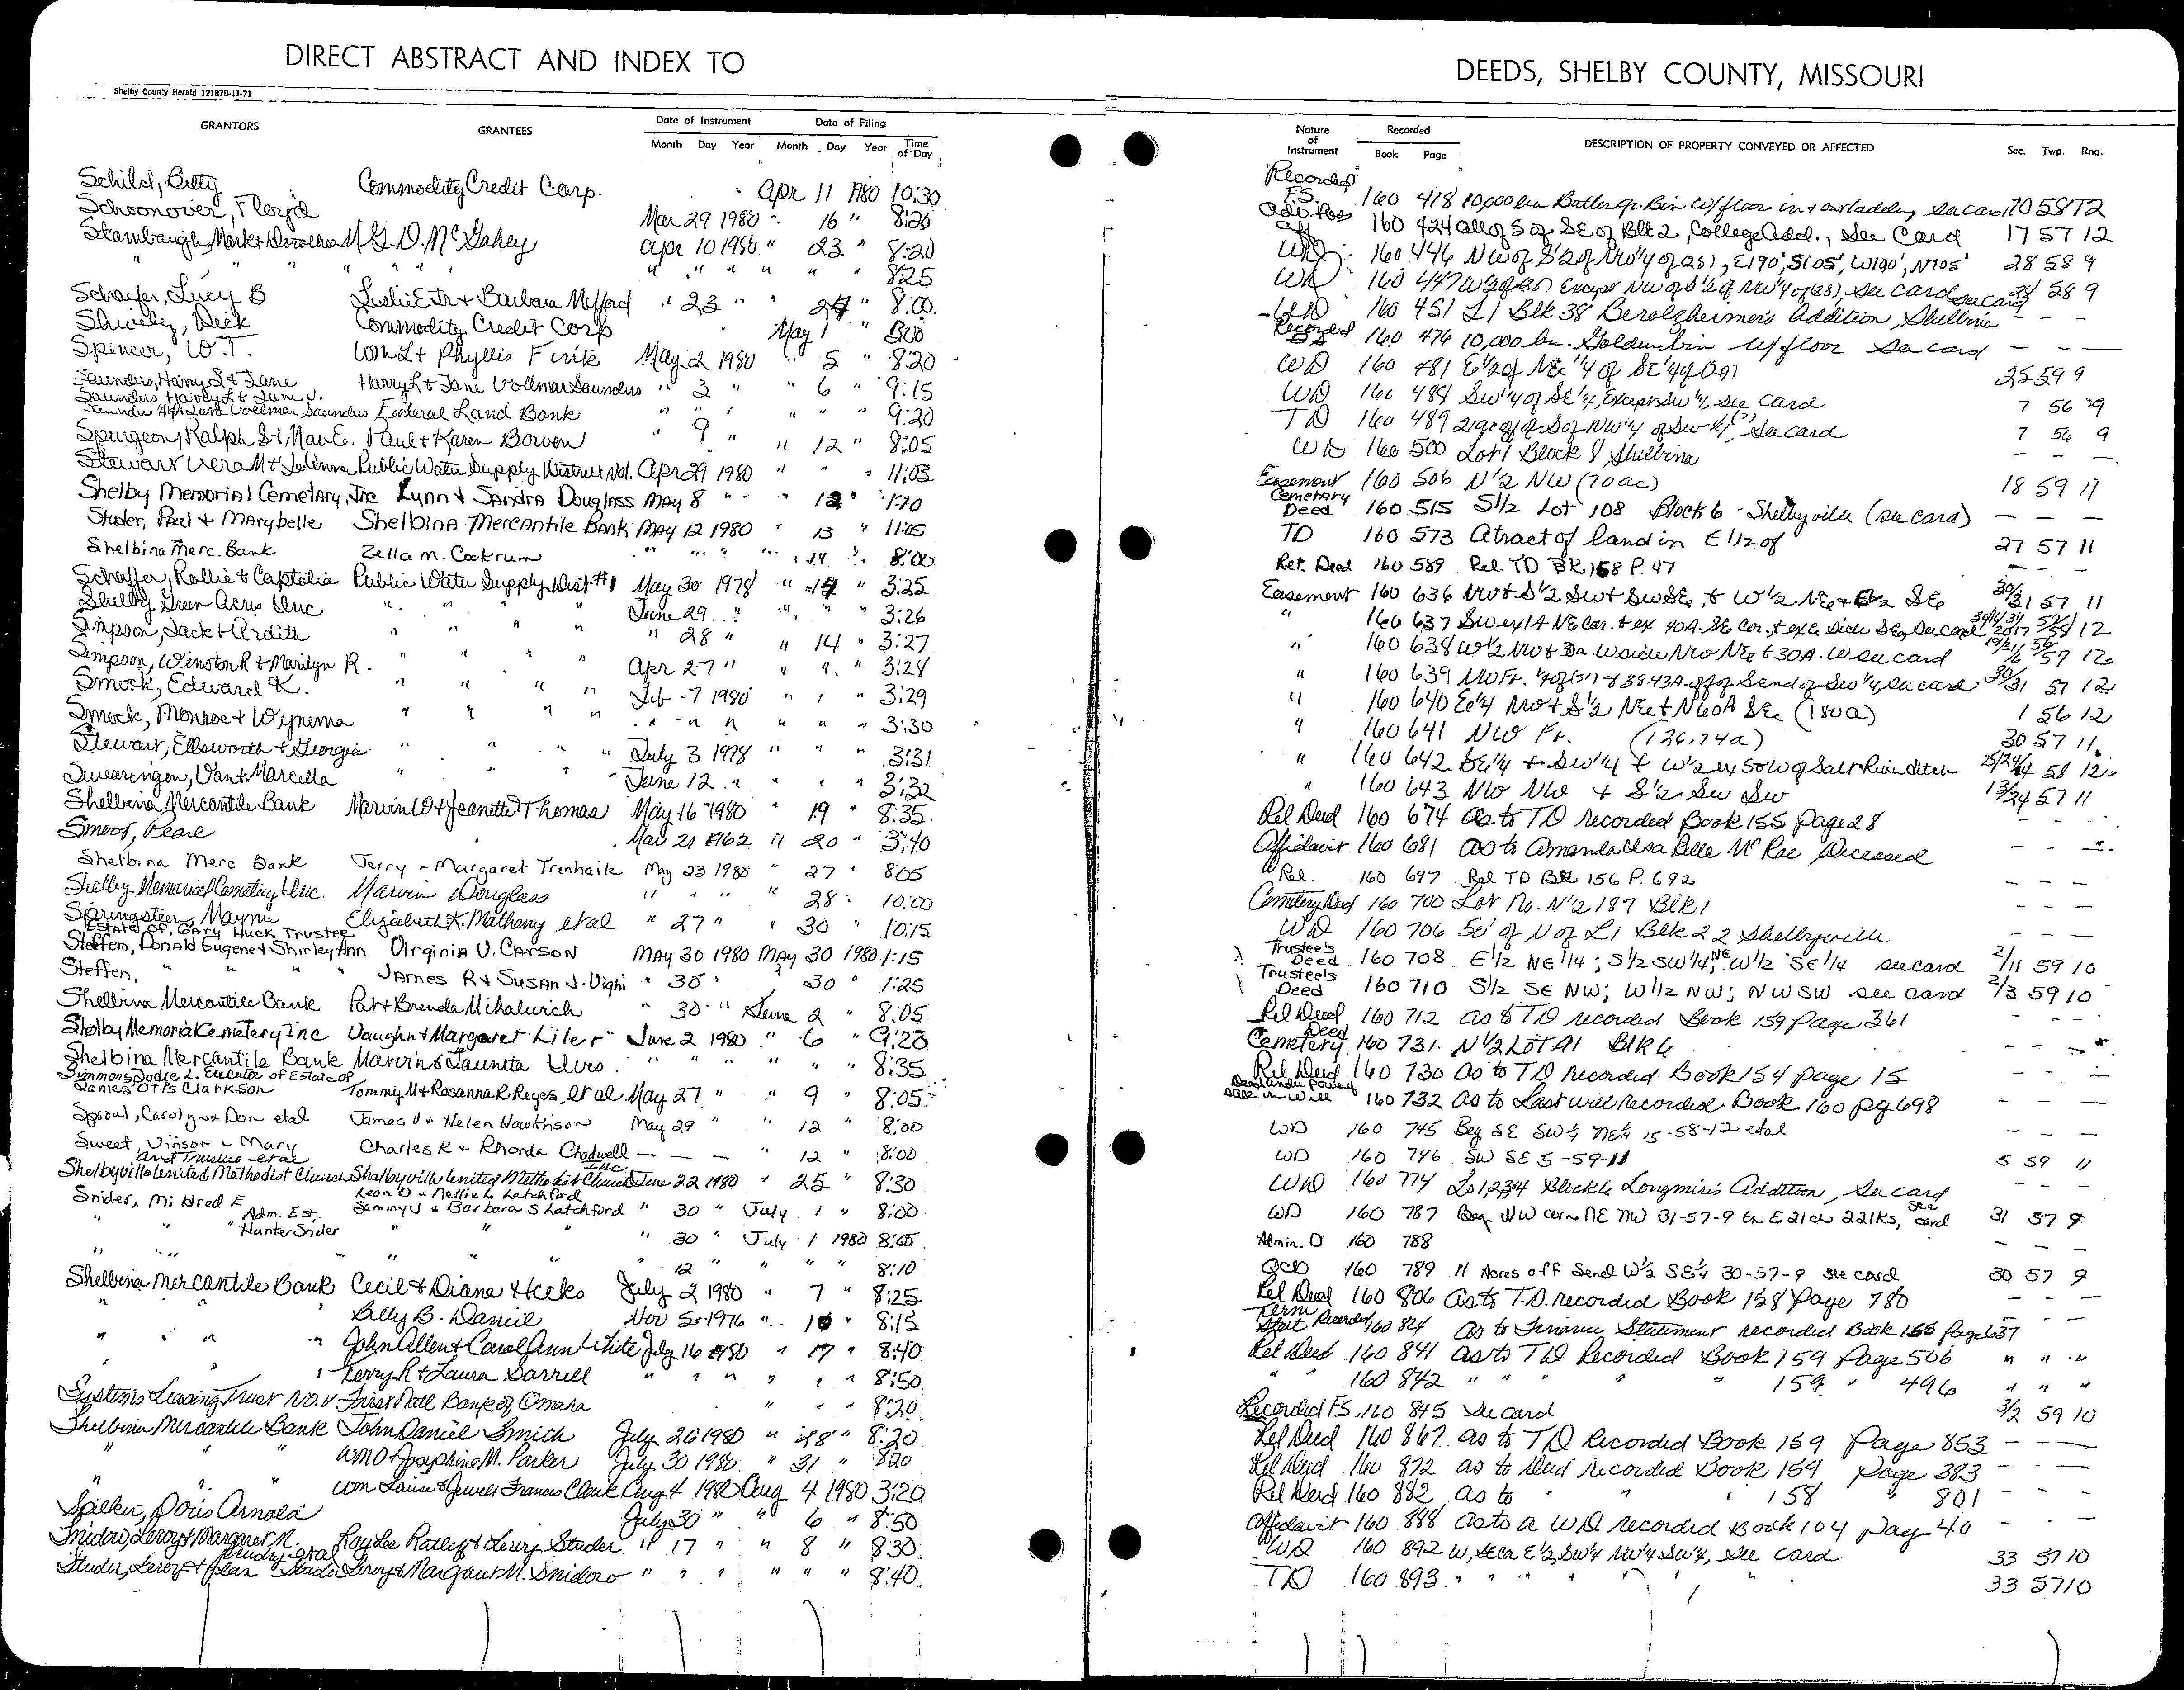 DIRECT ABSTRACT AND INDEX TO
Shelby County Herald 12187B-11-71
GRANTORS GRANTEES Date of Instrument Date of Filing
Month Day Year Month Day Year Time of Day
Schild, Betty Commodity Credit Corp. Apr 11 1980 10:30
Schoonover, Floyd Mar 29 1980 " 16 " 8:20
Stambaugh, Mark & Dorothea G.D. McGahey Apr 10 1980 " 23 " 8:20
" " " " " " " " " 8:25
Schaefer, Lucy B Leslie E Jr & Barbara Mefford " 23 " " 24 " 8:00
Shively, Dick Commodity Credit Corp May 1 "
Spencer, W.T. Wm L & Phyllis Fink May 2 1980 " 5 " 8:20
Saunders, Harry L & Jane Harry L & Jane Vollmar Saunders " 3 " " 6 " 9:15
Saunders Harry L & Jane V.
Saunders AKA Jane Vollmar Saunders Federal Land Bank " " " " " " 9:20
Spurgeon, Ralph S & Mae E. Paul & Karen Bowen " 9 " " 12 " 8:05
Stewart Vera M & JoAnna Public Water Supply District No1. Apr 29 1980 " " " 11:03
Shelby Memorial Cemetary, Inc Lynn & Sandra Douglass May 8 " " 12 " 1:10
Studer, Paul & Marybelle Shelbina Mercantile Bank May 12 1980 " 13 " 11:05
Shelbina Merc. Bank Zella M. Cockrum " " " " 14 " 8:00
Schaffer, Rollie & Capitolia Public Water Supply Dist #1 May 30 1978 " 14 " 3:25
Shelby Green Acres Inc " " " " June 29 " " " " 3:26
Simpson, Jack & Ardith " " " " " 28 " " 14 " 3:27
Simpson, Winston R & Marilyn R. " " " " Apr 27 " " " " 3:28
Smock, Edward K. " " " " Feb 7 1980 " " " 3:29
Smock, Monroe & Wynema " " " " " " " " " " 3:30
Stewart, Ellsworth & Georgia " " " " July 3 1978 " " " 3:31
Swearingen, Van & Marcella " " " " June 12 " " " " 3:32
Shelbina Mercantile Bank Marvin D & Jeanette Thomas May 16 1980 " 19 " 8:35
Smoot, Pearl Mar 21 1962 " 20 " 3:40
Shelbina Merc Bank Jerry & Margaret Trenhaile May 23 1980 " 27 " 8:05
Shelby Memorial Cemetery Inc. Marvin Douglass " " " " 28 " 10:00
Springsteen, Mayme Elizabeth K. Matheny et al " 27 " " 30 " 10:15
Estate of, Gary Huck Trustee
Steffen, Donald Eugene & Shirley Ann Virginia V. Carson May 30 1980 May 30 1980 1:15
Steffen, " " " James R & Susan J. Vighi " 30 " 30 " 1:25
Shelbina Mercantile Bank Pat & Brenda Mihalevich " 30 " June 2 " 8:05
Shelby Memorial Cemetery Inc Vaughn & Margaret Liter June 2 1980 " 6 " 9:20
Shelbina Mercantile Bank Marvin & Jaunita Uves " " " " " " 8:35
Simmons, Jodie L. Executor of Estate of
James Otis Clarkson Tommy M & Rosanna R Reyes, et al May 27 " " 9 " 8:05
Sproul, Carolyn & Don etal James V & Helen Hawkinson May 29 " " 12 " 8:00
Sweet, Vinson & Mary Charles K & Rhonda Chadwell — — — " 12 " 8:00
and Trustee etal Inc
Shelbyville United Methodist Church Shelbyville United Methodist Church June 22 1980 " 25 " 8:30
Snider, Mildred F Leon D & Nellie L Latchford
Adm. Est. Jammy J & Barbara S Latchford " 30 " July 1 " 8:00
" " " Hunter Snider " " " " 30 " July 1 1980 8:05
" " " " " " 12 " " " " 8:10
Shelbina Mercantile Bank Cecil & Diana Hicks July 2 1980 " 7 " 8:25
" " " Billy B. Daniel Nov 5 1976 " 10 " 8:15
" " " John Allen & Carol Ann White July 16 1980 " 17 " 8:40
" " " Terry R & Laura Sorrell " " " " " " 8:50
Systems Leasing Trust No. V First Natl Bank of Omaha " " " 8:20
Shelbina Mercantile Bank John Daniel Smith July 26 1980 " 28 " 8:20
" " " Wm O & Josephine M. Parker July 30 1980 " 31 " 8:20
" " " Wm Louise & Jewell Francis Clark Aug 4 1980 Aug 4 1980 3:20
Spilker, Doris Arnold July 30 " " 6 " 8:50
Snidow, Leroy & Margaret M. Roy Lee Ratliff & Leroy Studer " 17 " " 8 " 8:30
Studer, Leroy & Jean Leroy & Margaret M. Snidow " " " " " " 8:40
DEEDS, SHELBY COUNTY, MISSOURI
Nature of Instrument Recorded DESCRIPTION OF PROPERTY CONVEYED OR AFFECTED Sec. Twp. Rng.
Book Page
Recorded
F.S. 160 418 10,000 bu Butler gr. Bin w/floor in & out ladder, see card 10 58 12
160 424 all of S of SE of Blk 2, College Add., See Card 17 57 12
WD 160 446 NW of S½ of NW¼ of (28), E190', S105', W190', N105' 28 58 9
WD 160 447 Except NW of S½ of NW¼ of (28), see card 58 9
WD 160 451 L1 Blk 38 Berolzheimer's Addition, Shelbina — —
Recorded
FS 160 476 10,000 bu. Golden bin w/floor see card — — —
WD 160 481 E½ of NE¼ of SE¼ of (25) 25 59 9
WD 160 488 SW¼ of SE¼, Except SW¼, see card 7 56 9
TD 160 489 of S of NW¼ of SW¼, See card 7 56 9
WD 160 500 Lot 1 Block 8, Shelbina — — —
Easement 160 506 N½ NW (70ac) 18 59 11
Cemetary Deed 160 515 S1/2 Lot 108 Block 6 - Shelbyville (see card) — — —
TD 160 573 A tract of land in E1/2 of 27 57 11
Rel. Deed 160 589 Rel. TD BK 158 P. 47 — — —
Easement 160 636 NW & S½ SW & SWSE, & W½ NE & E½ SE 30/31 57 11
" 160 637 SW ex 1A NE Cor. & ex 40A. SE Cor. & ex E. side SE, See card
" 160 638 W½ NW & 30a. W side NW NE & 30A. W see card
" 160 639 NW Fr. ¼ of (31) & 38.43A off of S end of SW¼, see card 30/31 57 12
" 160 640 E¼ NW & S½ NE & N60A SE (180a) 1 56 12
" 160 641 NW Fr. (126.74a) 30 57 11
" 160 642 SE¼ & SW¼ & W½ ex 50 W of Salt River ditch 58 12
" 160 643 NW NW & S½ SW SW 13/24 57 11
Rel Deed 160 674 As to TD recorded Book 155 page 28 — — —
Affidavit 160 681 As to Amanda Elsa Belle McRae Deceased — — —
Rel. 160 697 Rel TD BK 156 P. 692 — — —
Cemetery Deed 160 700 Lot No. N½ 187 Blk 1
WD 160 706 50' of N of L1 Blk 22 Shelbyville — — —
Trustee's Deed 160 708 E1/2 NE1/4; S1/2 SW1/4, NE W1/2 SE1/4 see card 2/11 59 10
Trustee's Deed 160 710 S1/2 SE NW; W1/2 NW; NWSW see card 2/3 59 10
Rel Deed 160 712 as to TD recorded Book 159 Page 361 — — —
Cemetery Deed 160 731 N1/2 Lot 91 Blk 6 — — —
Rel Deed 160 730 As to TD Recorded Book 154 page 15 — — —
Deed under power of sale in will 160 732 as to Last will Recorded Book 160 pg 698 — — —
WD 160 745 Beg SE SW¼ NE¼ 15-58-12 etal — — —
WD 160 746 SW SE 5-59-11 5 59 11
WD 160 774 Ls 1234 Block 6 Longmire's Addition, See card — — —
WD 160 787 Beg NW corn NE NW 31-57-9 th E 21 ch 22 lks, see card 31 57 9
Admin. D 160 788 — — —
QCD 160 789 11 Acres off S end W½ SE¼ 30-57-9 see card 30 57 9
Rel Deed 160 806 As to T.D. recorded Book 158 Page 780 — — —
Term Stmt Recorded 160 824 As to Finance Statement recorded Book 155 page 637 — —
Rel Deed 160 841 as to TD Recorded Book 159 Page 506 " " "
" " 160 842 " " " " 159 " 496 " " "
Recorded F.S. 160 845 See card 3/2 59 10
Rel Deed 160 867 as to TD Recorded Book 159 Page 853 — — —
Rel Deed 160 872 as to Deed recorded Book 159 Page 383 — — —
Rel Deed 160 882 as to " " " 158 " 801 — — —
Affidavit 160 888 as to a WD recorded Book 104 page 40 — — —
WD 160 892 W, E½, SW¼ NW¼ SW¼, See card 33 57 10
TD 160 893 " " " " " " 33 57 10